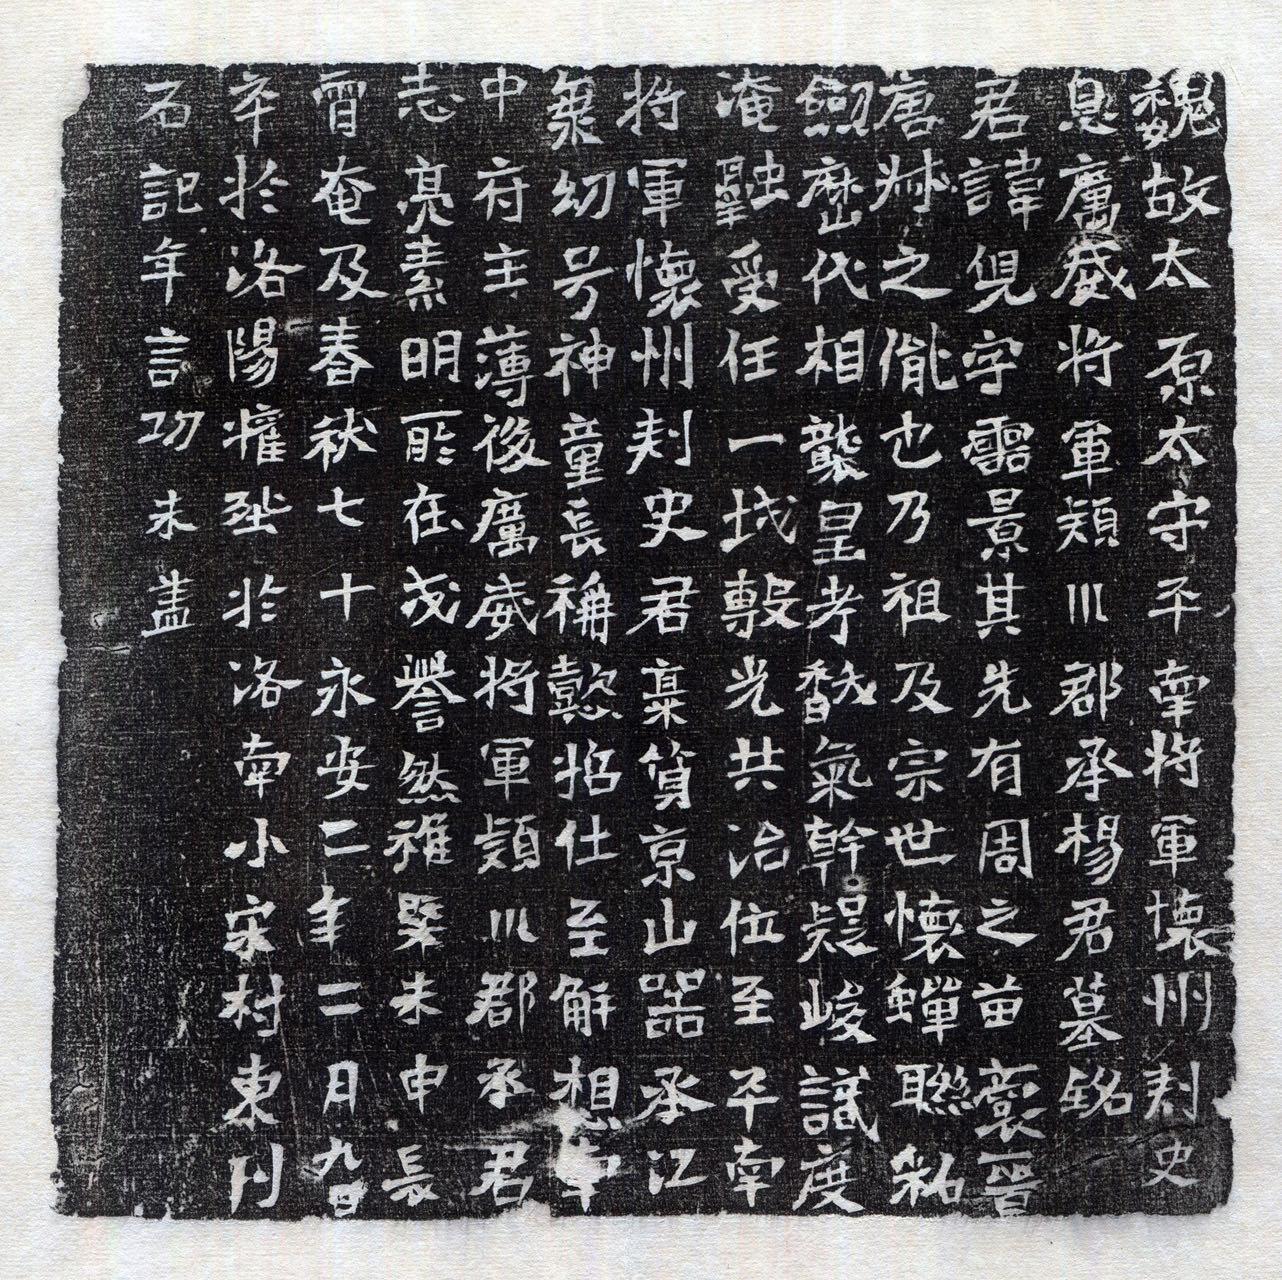 魏故太原太守平南將軍懷州刺史
息廣威將軍潁川郡承楊君墓銘
君諱皃字靈景其先有周之苗裔晉
唐州之胤也乃祖及宗世懷蟬聯弈
劒歷代相襲皇考馥氣幹凝峻識度
淹融受任一城專光共治位至平南
將軍懷州刺史君稟質京山器承江
葉幼号神童長稱懿招仕至解想中
中府主薄後廣威將軍潁川郡丞君
志亮素明所在茂譽然雅槩未申長
霄奄及春秋七十永安二年二月九日
卒於洛陽權坐於洛南小宋村東刊
石記年言功未盖